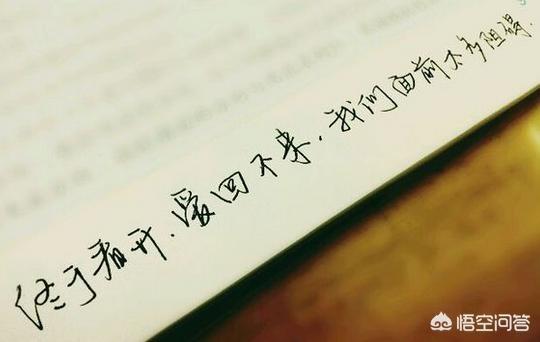 终于看开.爱回不来.我们面前太多阻碍.
悟空问答